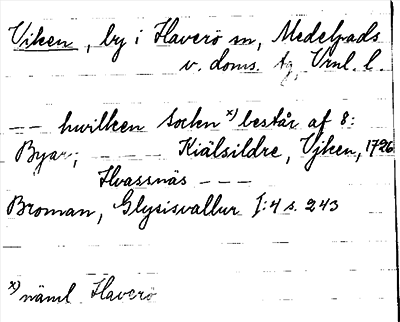 Viken, by i Haverö sn, Medelpads
v. doms. tg, Vrnl. l.
-- hwilken Sockn x) består af 8:
Byar, Kiälsildre, Vjken, 1726
Hvassnäs ---
Broman, Glysisvallur I:4 s. 243
x) näml. Haverö